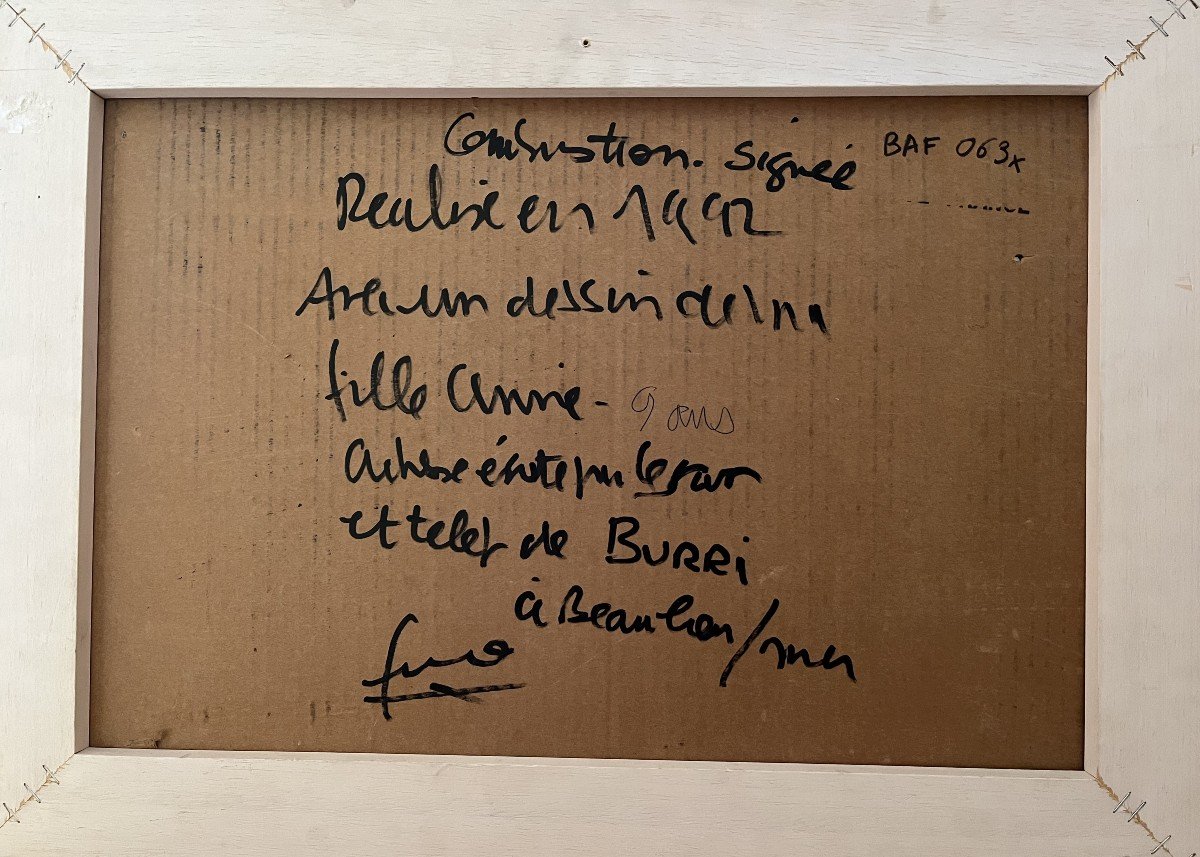 Combustion. signée BAF 063x
Realise en 1992
Avec un dessin de ma
fille Annie - 9 ans
Adresse écrite par
et telef de BURRi
à Beaulieu / mer